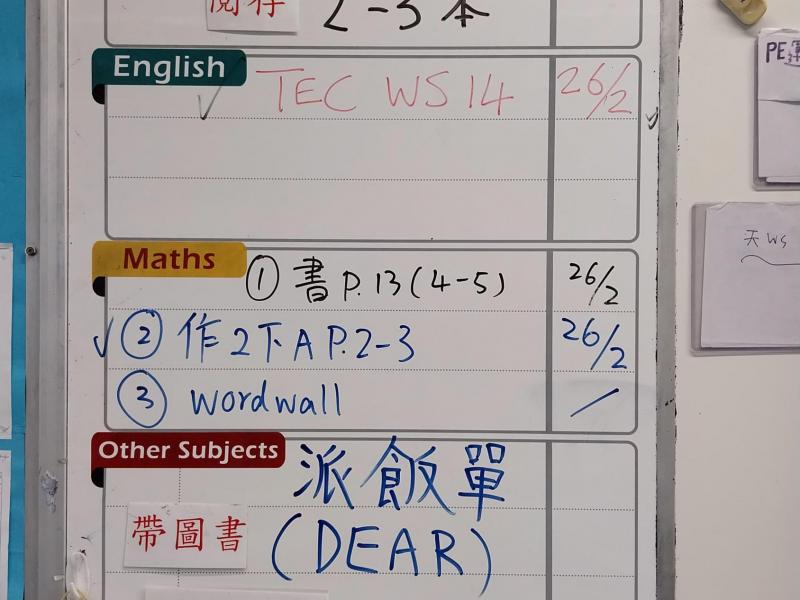 閱存 2-3本
English
TEC WS 14 26/2
Maths
① 書 P.13(4-5) 26/2
② 作2下A P.2-3 26/2
③ wordwall /
Other Subjects
派飯單
帶圖書 (DEAR)
PE
天 WS